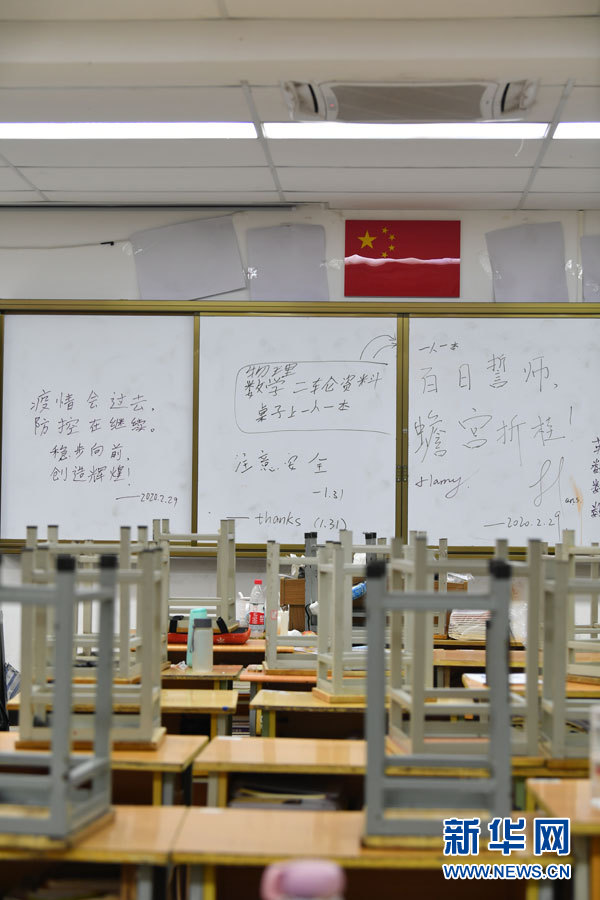 疫情会过去,
防控在继续。
稳步向前,
创造辉煌!
——2020.2.29
物理
数学 二轮资料
桌子上一人一本
注意安全
-1.31
— thanks (1.31)
一人一本
百日誓师,
蟾宫折桂!
Hans
——2020.2.29
数
数
数
新华网
WWW.NEWS.CN